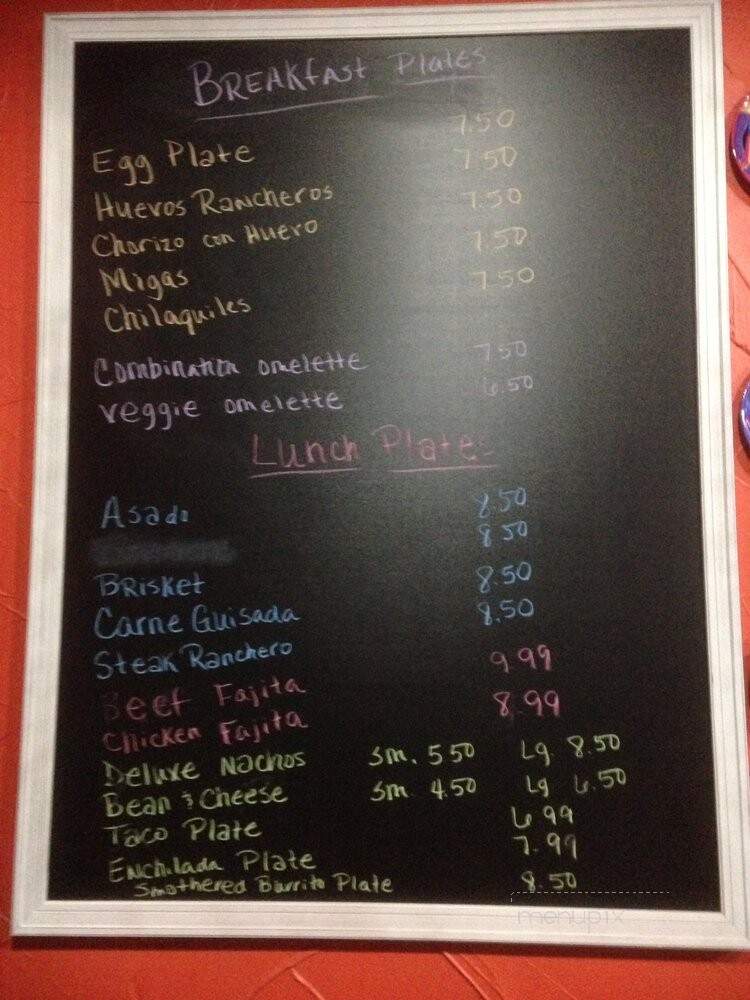 BREAKfast Plates
Egg Plate 7.50
Huevos Rancheros 7.50
Chorizo con Huevo 7.50
Migas 7.50
Chilaquiles 7.50
Combination omelette 7.50
veggie omelette 6.50
Lunch Plates
Asado 8.50
BRisket 8.50
Carne Guisada 8.50
Steak Ranchero 8.50
Beef Fajita 9.99
Chicken Fajita 8.99
Deluxe Nachos sm. 5.50 Lg. 8.50
Bean & Cheese sm 4.50 Lg 6.50
Taco Plate 6.99
Enchilada Plate 7.99
Smothered Burrito Plate 8.50
menupix